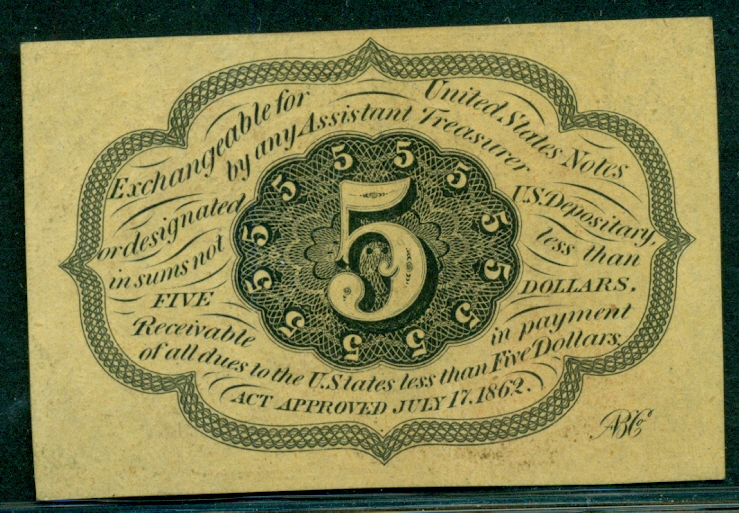 Exchangeable for United States Notes
by any Assistant Treasurer
or designated U.S. Depositary,
in sums not less than
FIVE DOLLARS.
Receivable in payment
of all dues to the U. States less than Five Dollars.
(ACT APPROVED JULY 17, 1862.)
5
5
5
5
5
5
5
5
5
5
5
5
5
5
ABCo